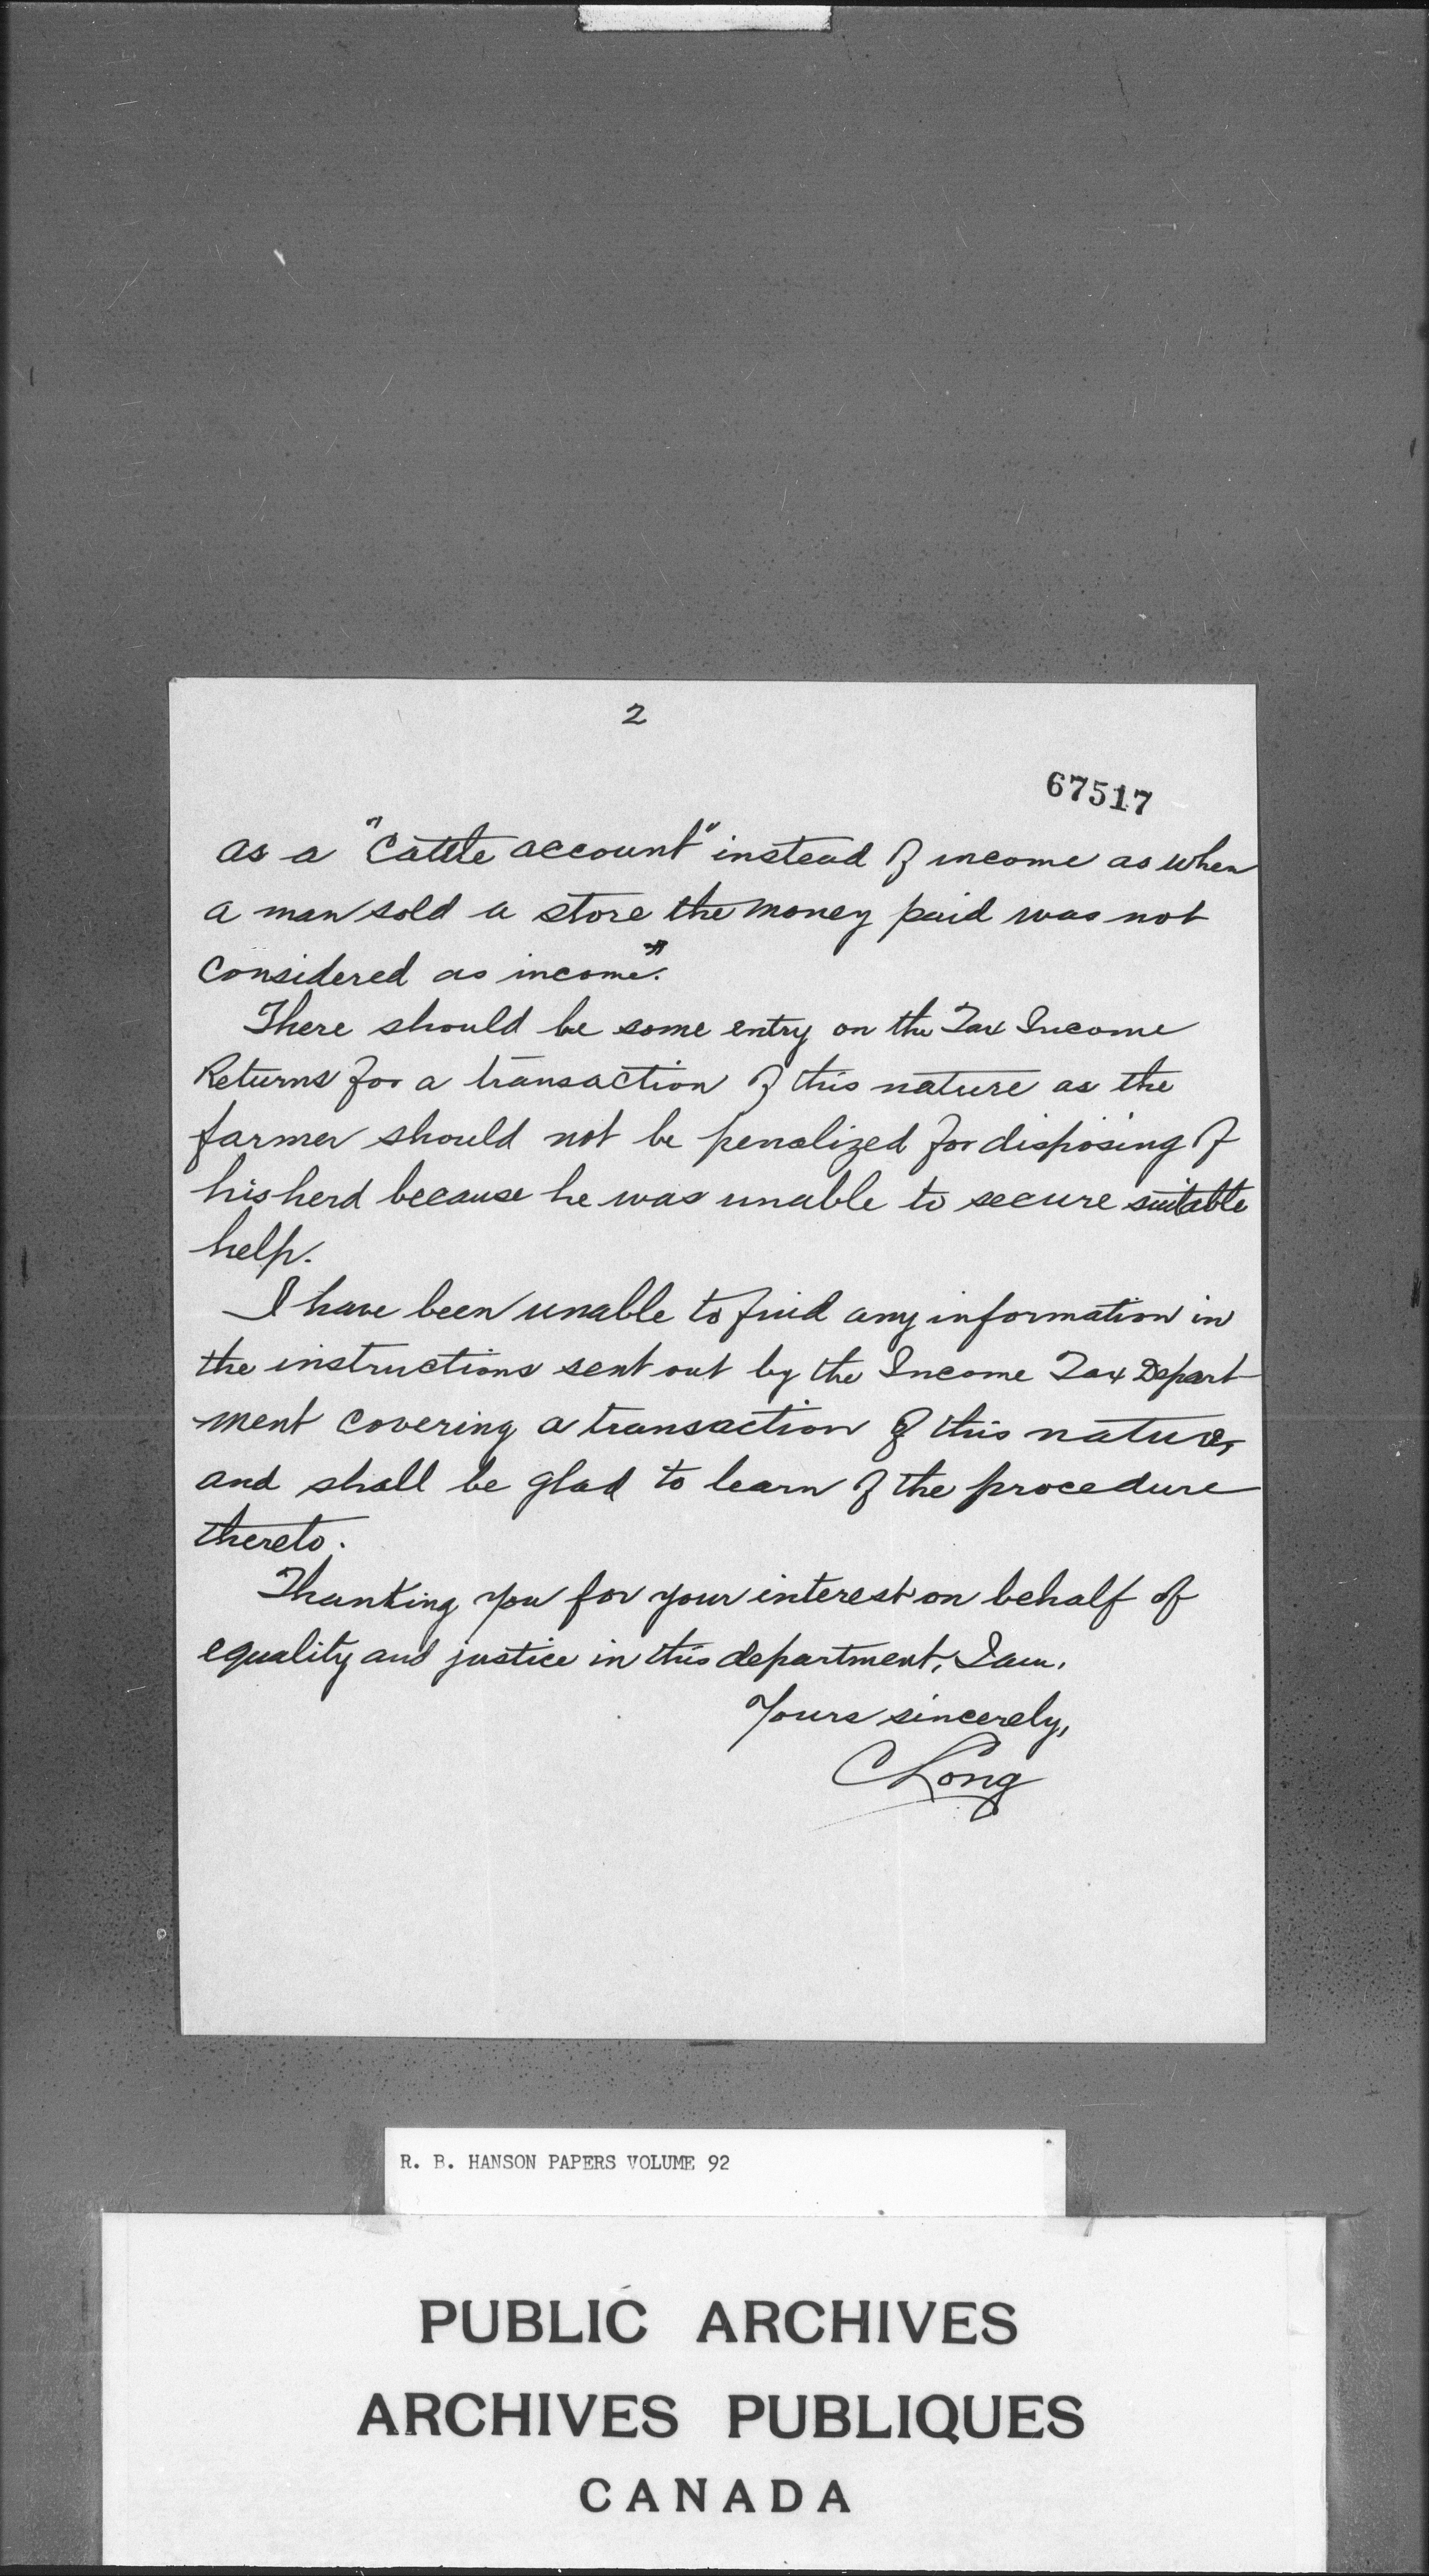 2
67517
as a "Cattle account" instead of income as when
a man sold a store the money paid was not
Considered as income".
There should be some entry on the Tax Income
Returns for a transaction of this nature as the
farmer should not be penalized for disposing of
his herd because he was unable to secure suitable
help.
I have been unable to find any information in
the instructions sent out by the Income Tax Depart
-ment covering a transaction of this nature,
and shall be glad to learn of the procedure
thereto.
Thanking you for your interest on behalf of
equality and justice in this department, I am.
Yours sincerely,
C Long
R. B. HANSON PAPERS VOLUME 92
PUBLIC ARCHIVES
ARCHIVES PUBLIQUES
CANADA